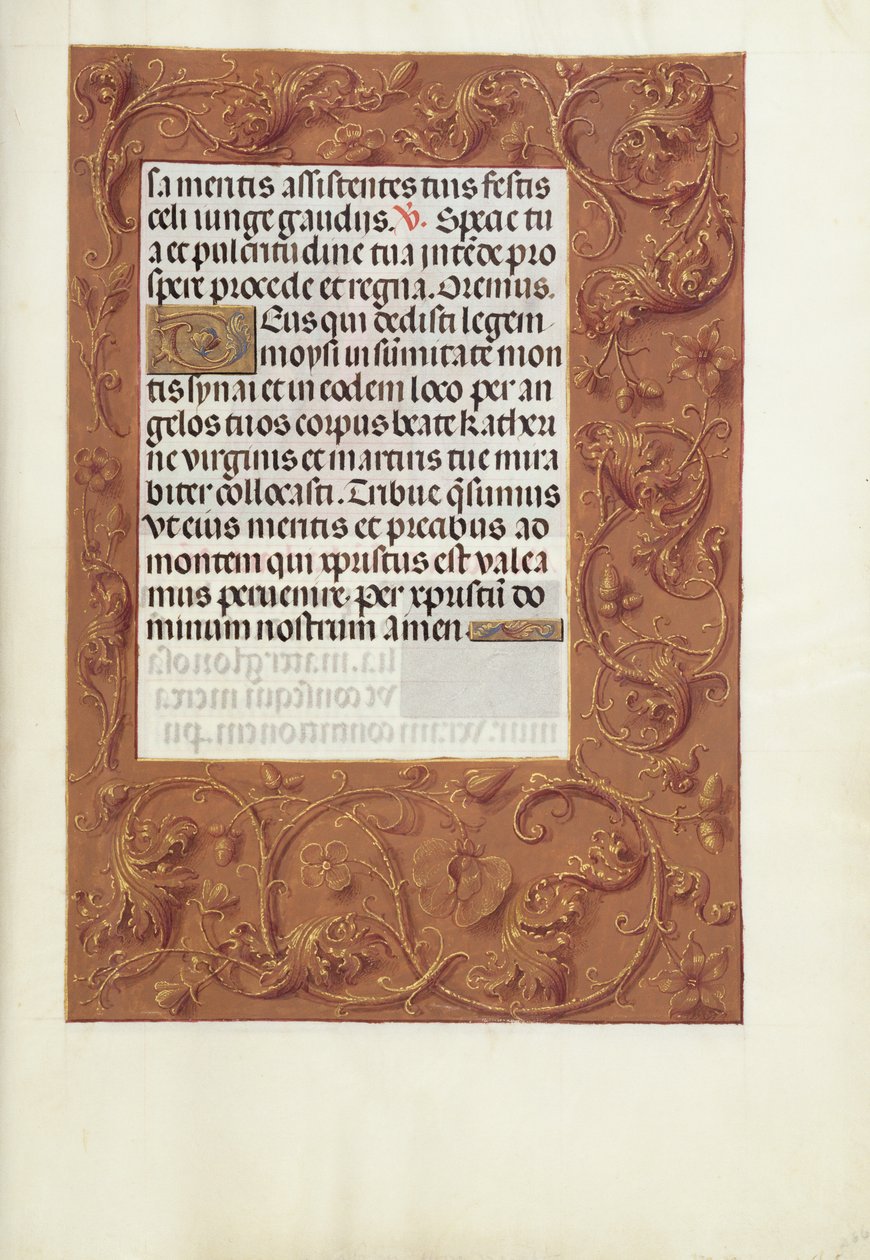 sa meritis assistentes tuis festis
celi iunge gaudijs. V. Specie tu
a et pulcritudine tua intēde pro
spere procede et regna. Oremus.
Deus qui dedisti legem
moysi in sūmitate mon
tis synai et in eodem loco per an
gelos tuos corpus beate Katheri
ne virginis et martiris tue mira
biter collocasti. Tribue q̄sumus
vt eius meritis et precibus ad
montem qui xpristus est valea
mus peruenire. per xpristū do
minum nostrum amen.